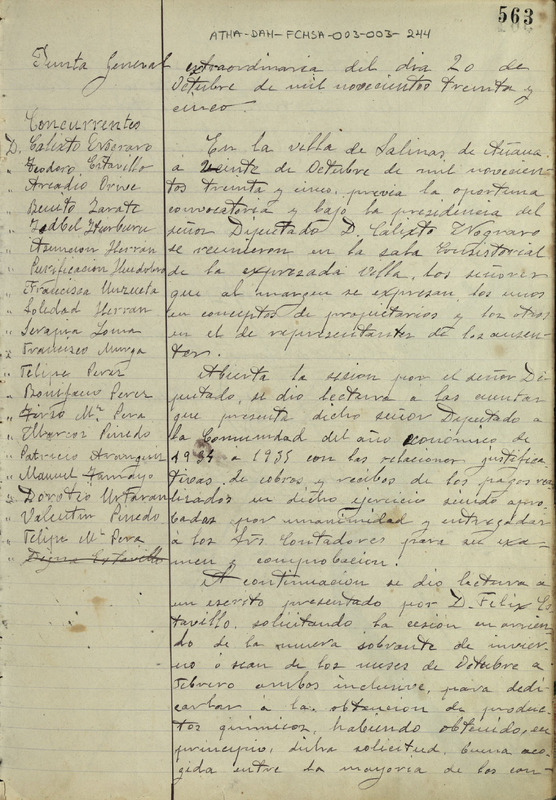 563
ATHA-DAH-FCHSA-003-003-244
Junta General extraordinaria del dia 20 de
Octubre de mil novecientos treinta y
cinco.
Concurrentes
D. Calixto Nograro
" Teodoro Estavillo
" Arcadio Orive
" Benito Zarate
" Isabel
" Asuncion Herran
" Purificacion
" Francisca Unzueta
" Soledad Herran
" Serapia Loma
" Francisco Murga
" Felipe Perez
" Bonifacio Perez
" Mª Pera
" Marcos Pinedo
" Patricio
" Manuel Tamayo
D. Doroteo Urtaran
" Valentin Pinedo
" Felipe Mª Pera
" Digna Estavillo
En la villa de Salinas de Añana
á veinte de Octubre de mil novecien-
tos treinta y cinco, previa la oportuna
convocatoria y bajo la presidencia del
señor Diputado D. Calixto Nograro
se reunieron en la sala Consistorial
de la expresada villa, los señores
que al margen se expresan, los unos
en concepto de propietarios y los otros
en el de representantes de los ausen-
tes.
Abierta la sesion por el señor Di-
putado, se dio lectura a las cuentas
que presenta dicho señor Diputado a
la Comunidad del año económico de
1934 a 1935 con las relaciones justifica-
tivas de cobros y recibos de los pagos rea
lizados en dicho ejercicio siendo apro-
badas por unanimidad y entregadas
á los Srs Contadores para su exa-
men y comprobacion.
A continuacion se dio lectura a
un escrito presentado por D. Felix Es
tavillo, solicitando la cesion en arrien
do de la muera sobrante de invier
no ó sean de los meses de Octubre a
Febrero ambos inclusive, para dedi
carlas a la obtencion de produc
tos quimicos, habiendo obtenido, en
principio, dicha solicitud, buena aco-
gida entre la mayoria de los con-